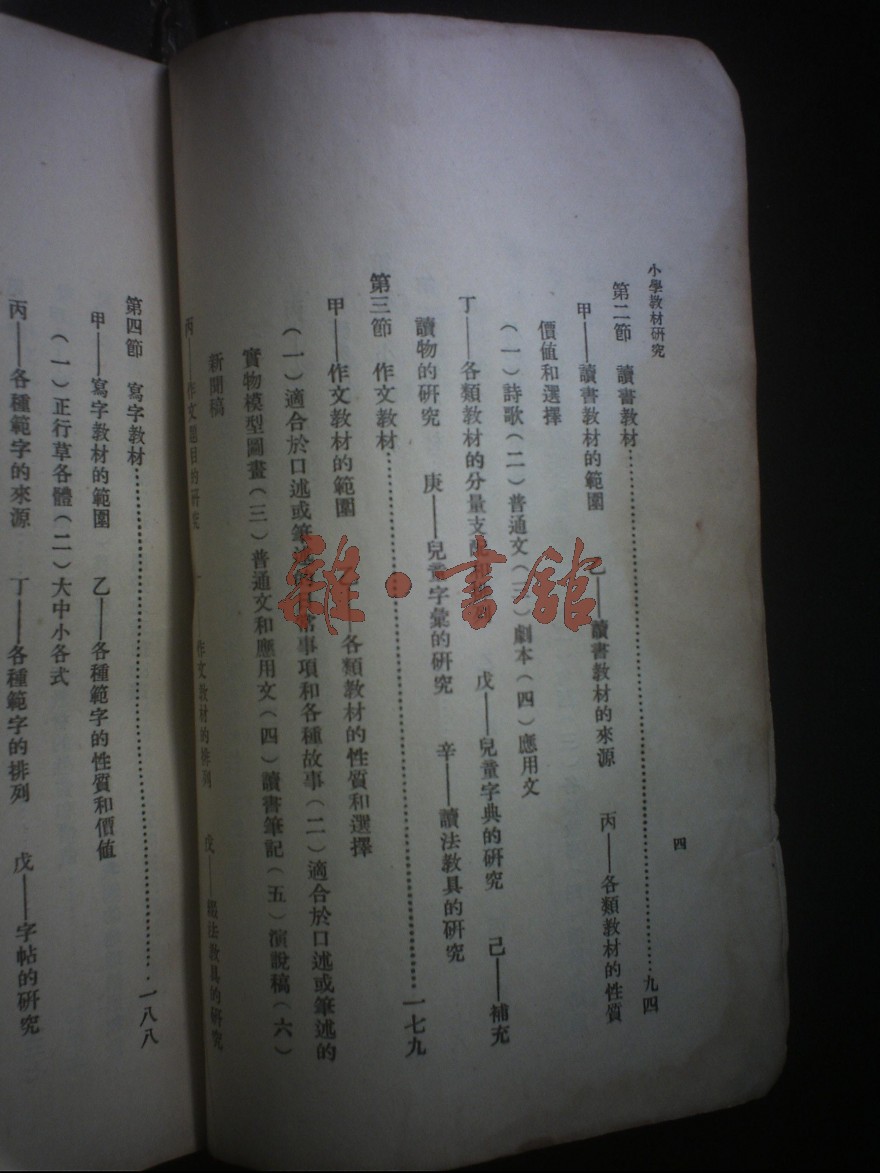 小學教材研究
四
第二節　讀書教材……九四
甲——讀書教材的範圍　乙——讀書教材的來源　丙——各類教材的性質
價值和選擇
（一）詩歌（二）普通文（三）劇本（四）應用文
丁——各類教材的分量支配　戊——兒童字典的研究　己——補充
讀物的研究　庚——兒童字彙的研究　辛——讀法教具的研究
第三節　作文教材……一七九
甲——作文教材的範圍　乙——各類教材的性質和選擇
（一）適合於口述或筆述的日常事項和各種故事（二）適合於口述或筆述的
實物模型圖畫（三）普通文和應用文（四）讀書筆記（五）演說稿（六）
新聞稿
丙——作文題目的研究　作文教材的排列　戊——綴法教具的研究
第四節　寫字教材……一八八
甲——寫字教材的範圍　乙——各種範字的性質和價值
（一）正行草各體（二）大中小各式
丙——各種範字的來源　丁——各種範字的排列　戊——字帖的研究
雜·書館